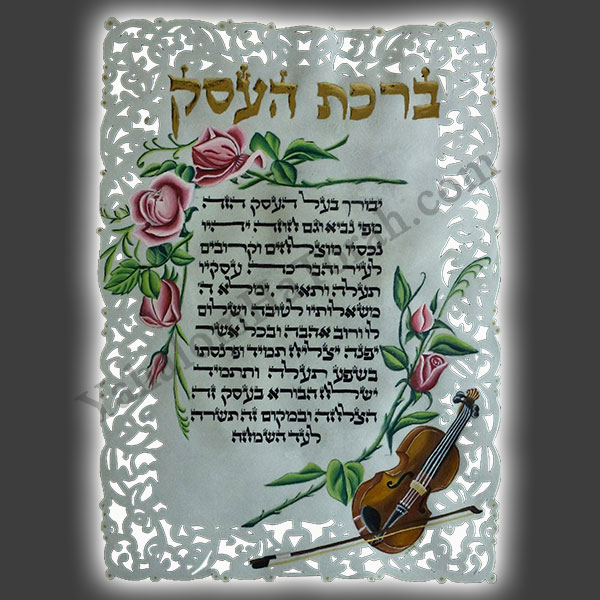 ברכת העסק
יבורך בעל העסק הזה
מפי נביא וגם חוזה. יהיו
נכסיו מוצלחים וקרובים
לעיר והברכה עסקיו
תעלה ותאיר. ימלא ה'
משאלותיו לטובה ושלום
לו ורוב אהבה ובכל אשר
יפנה יצליח תמיד ופרנסתו
בשפע תעלה. ותתמיד
ישלח הבורא בעסק זה
הצלחה ובמקום זה תשרה
לעד השמחה